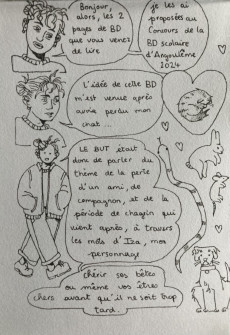 Bonjour,
alors, les 2
pages de BD
que vous venez
de lire
je les ai
proposées au
Concours de la
BD scolaire
d'Angoulême
2024
L'idée de cette BD
m'est venue après
avoir perdu mon
chat...
LE BUT était
donc de parler du
thème de la perte
d'un ami, de
compagnon, et de
la période de chagrin qui
vient après, à travers
les mots d'Iza, mon
personnage
chérir ses bêtes
ou même vos êtres
chers avant qu'il ne soit trop
tard.